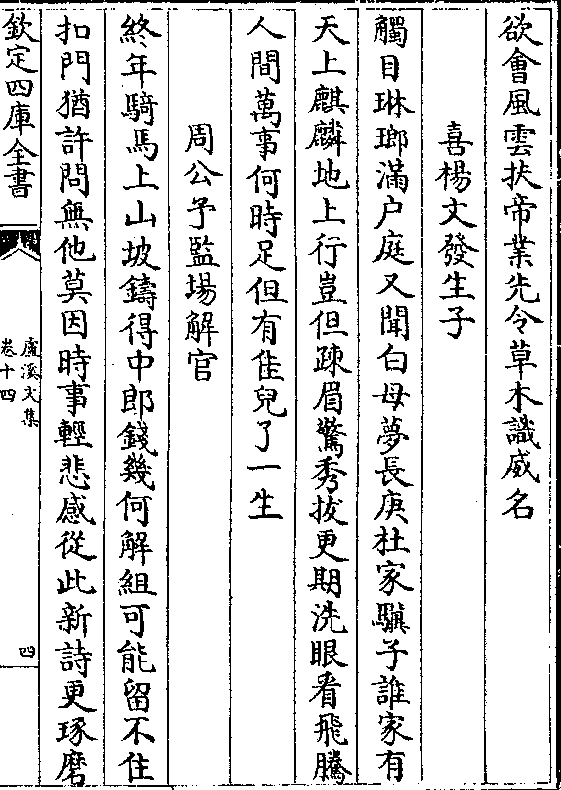 欲會風雲扶帝業先令草木識威名
喜楊文發生子
觸目琳瑯滿户庭又聞白母夢長庚杜家驥子誰家有
天上麒麟地上行豈但疎眉驚秀拔更期洗眼看飛騰
人間萬事何時足但有佳兒了一生
周公予監場解官
終年騎馬上山坡鑄得中郎錢幾何解組可能留不住
扣門猶許問無他莫因時事輕悲感從此新詩更琢磨
欽定四庫全書
盧溪文集
卷十四
四